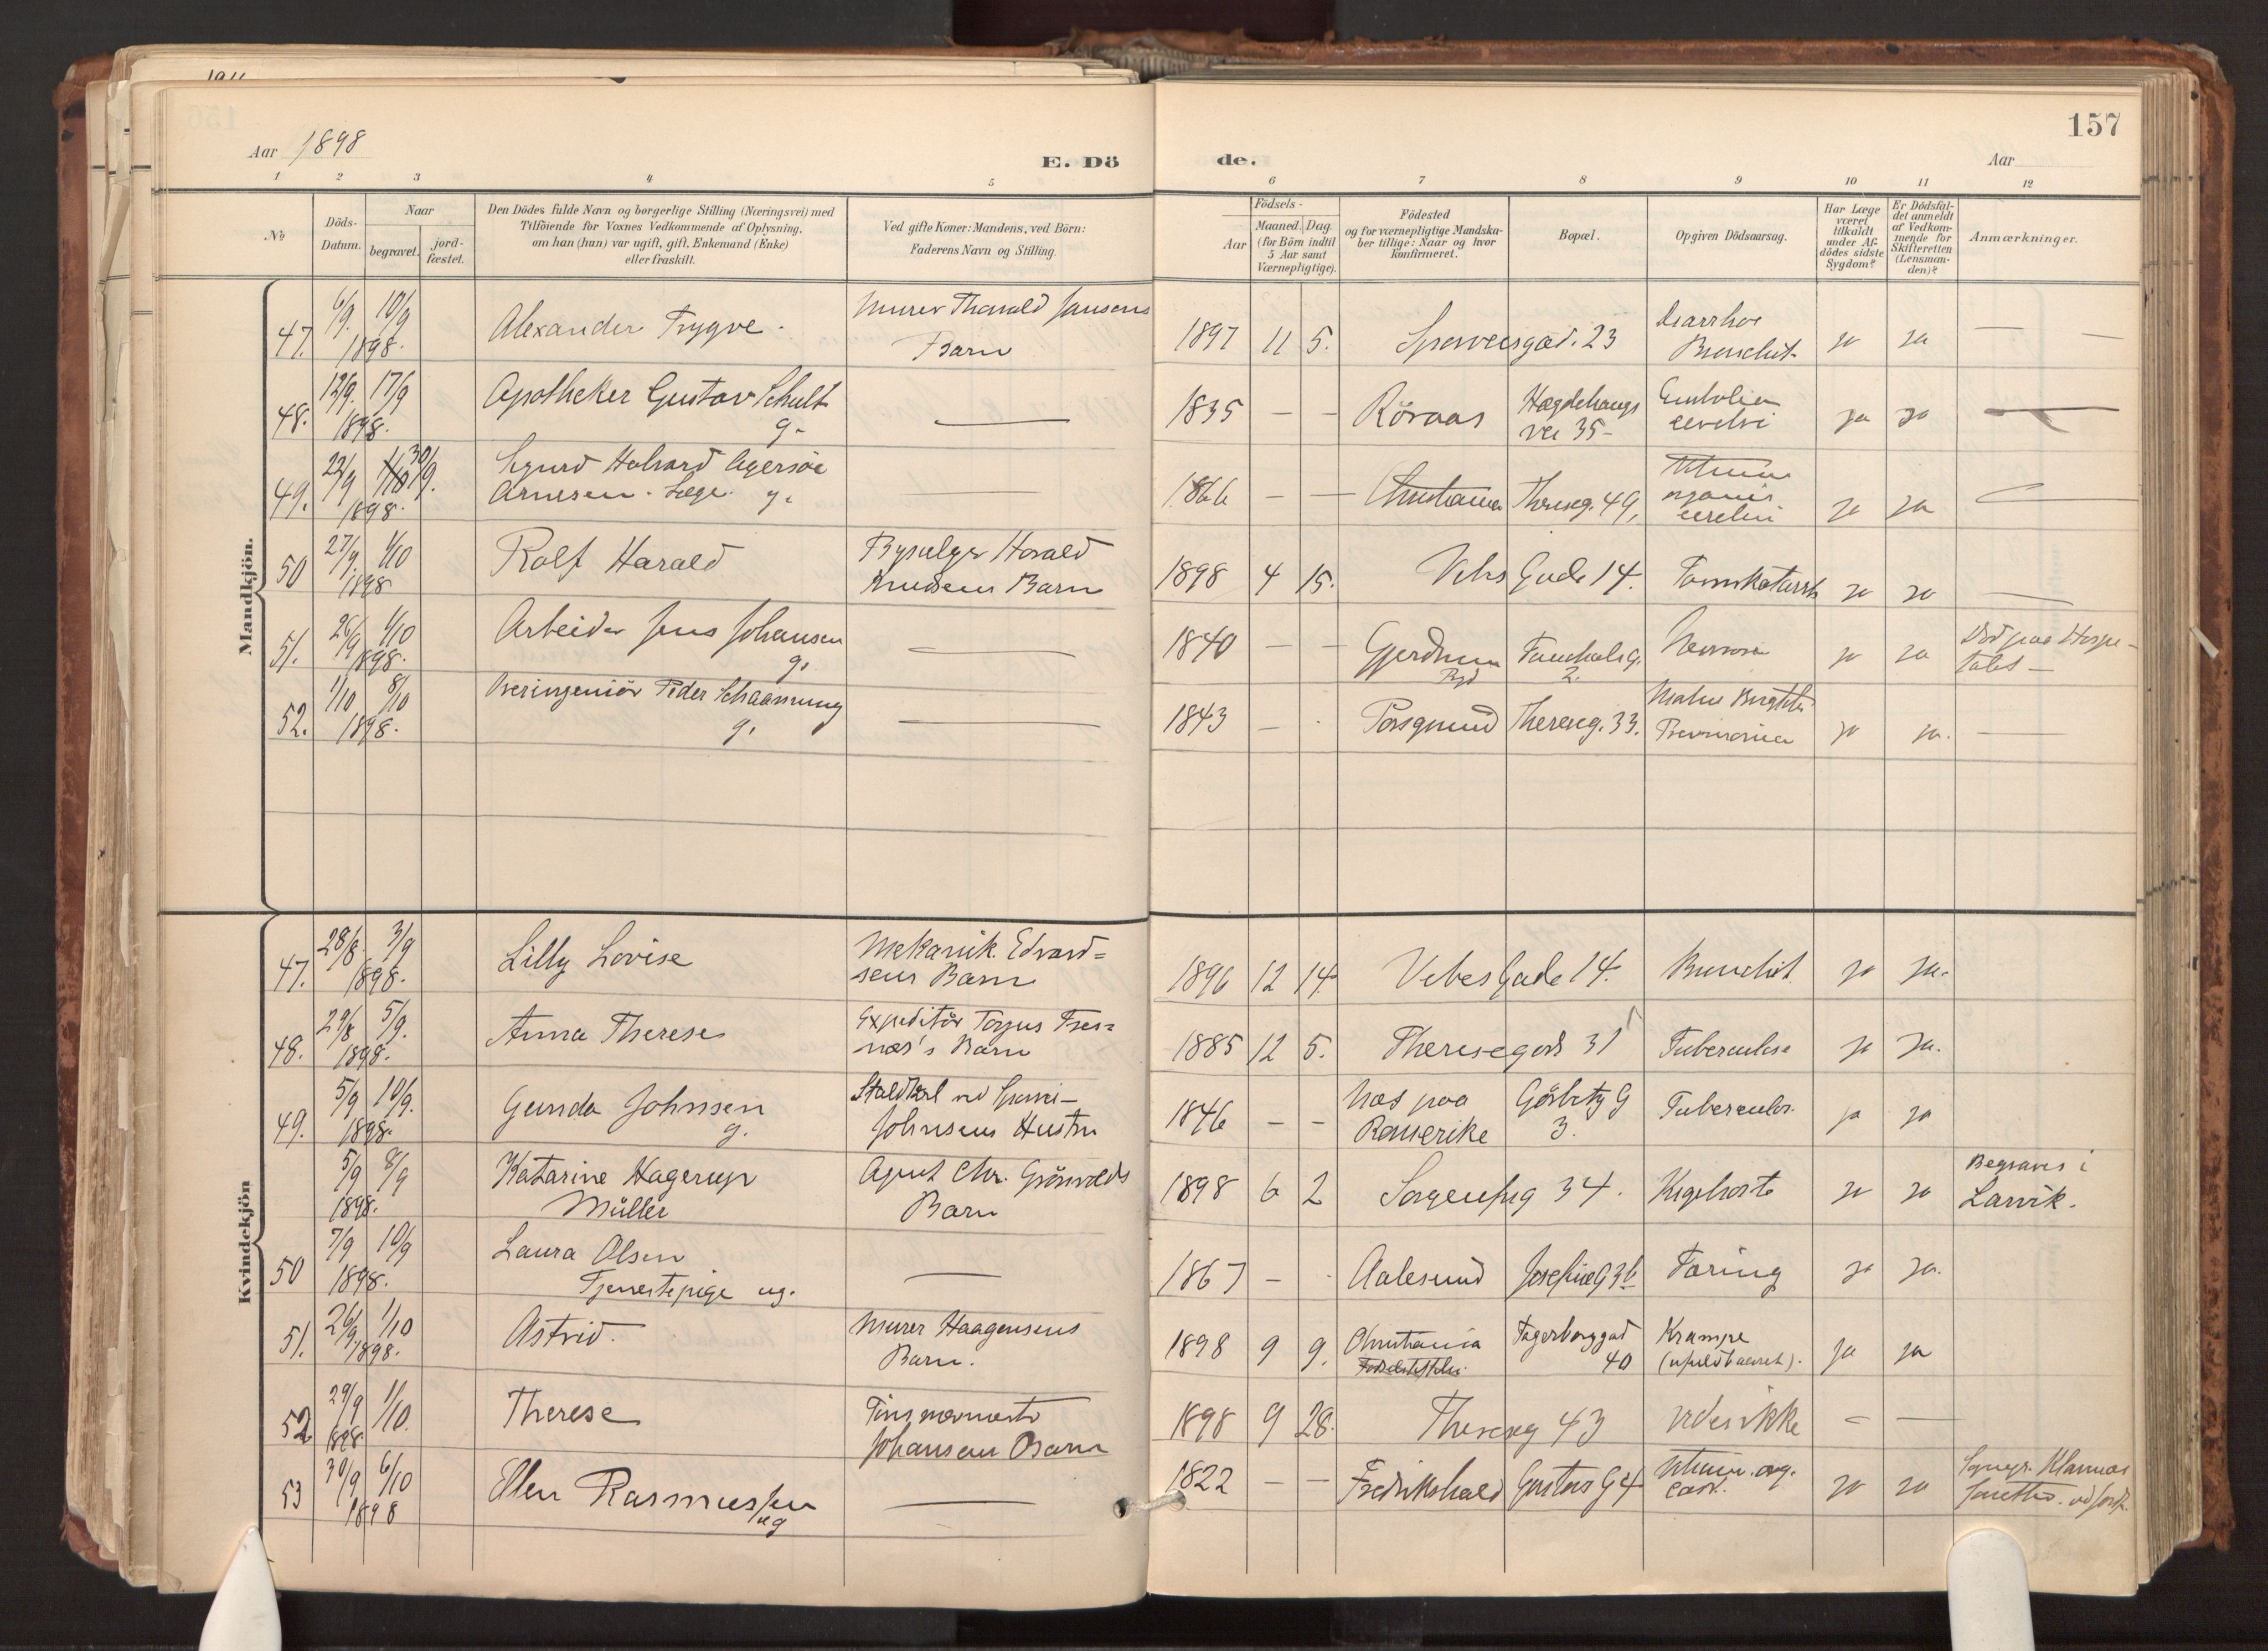 Aar 1898
E. Dö
de.
157
Aar
1 2 3 4 5 6 7 8 9 10 11 12
No
Döds-Datum.
Naar
begravet.
jord-fæstet.
Den Dödes fulde Navn og borgerlige Stilling (Næringsvei) med
Tilföiende for Voxnes Vedkommende af Oplysning,
om han (hun) var ugift, gift, Enkemand (Enke)
eller fraskilt.
Ved gifte Koner: Mandens, ved Börn:
Faderens Navn og Stilling.
Födsels-
Aar
Maaned. Dag.
(for Börn indtil
5 Aar samt
Værnepligtige).
Födested
og for værnepligtige Mandska-
ber tillige: Naar og hvor
konfirmeret.
Bopæl.
Opgiven Dödsaarsag.
Har Læge
været
tilkaldt
under Af-
dödes sidste
Sygdom?
Er Dödsfal-
det anmeldt
af Vedkom-
mende for
Skifteretten
(Lensman-
den)?
Anmærkninger.
Mandkjön.
47. 6/9. 10/9 1898.
Alexander Trygve.
Murer Tharald Jansens
Barn
1897 11 5. 23
Diarrhoe
Bronchit.
ja ja — —
48. 12/9. 17/9 1898.
Apotheker Gustav Schult
g. —
1835 — — Röraas
Hægdehaugs
vei 35 —
Embolia
cerebri
ja ja —
49. 22/9 30/9. 1898.
Sigurd Halvard Agersöe
Arnesen. Læge. g. —
1866 — — Christiania Thereseg. 49,
cerebri
ja ja —
50 27/9. 1/10 1898
Rolf Harald
Harald
Knudsens Barn
1898 4 15. Vibes Gade 14. Tarmkatarrh ja ja —
51. 26/9 1/10 1898.
Arbeider Jens Johansen
g. —
1840 — — Gjerdrum
2.
ja ja
Död paa Hospi-
talet —
52. 1/10 8/10 1898.
Overingeniör Peder Schaanning
g. —
1843 — Porsgrund Thereseg. 33.
Pneumonia
ja ja. —
Kvindekjön
47. 28/8 3/9 1898.
Lilly Lovise
Mekanik. Edvard=
sens Barn
1896 12 14. Vibes Gade 14. Bronchit ja ja.
48. 29/8 5/9. 1898.
Anna Therese
Expeditör Torjus Tres=
næs's Barn
1885 12 5. Theresegad 31 Tuberculose ja ja.
49. 5/9 10/9. 1898.
Gunda Johnsen
g.
Staldkarl ved
Johnsens Hustru
1846 — —
Næs paa
Romerike
Görbitz G
3.
Tuberculos. ja ja
5/9 8/9 1898.
Katarine Hagerup
Müller
Agent Chr. Grönvolds
Barn
1898 6 2 Sorgenfrig 34. Kighoste ja ja
Begraves i
Larvik.
50 7/9 10/9 1898.
Laura Olsen
Tjenestepige ug. —
1867 — Aalesund Josefineg 36 Tæring ja ja.
51. 26/9 1/10 1898.
Astrid.
Murer Haagensens
Barn.
1898 9 9. Christiania
Fagerborggad
40
Krampe
(ufuldbaaret).
ja ja
52 29/9 1/10. 1898
Therese
Tömmermester
Johansens Barn
1898 9 28. Thereseg 43 vides ikke — —
53 30/9 6/10 1898
Ellen Rasmussen
ug —
1822 — — Fredrikshald Gustavs G 4
Vitium org.
cord.
ja ja
Sognepr. Klaveness
forretted. ved Jordf.